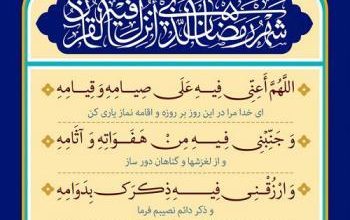 شهر رمضان الذي أنزل فيه القرآن
اللَّهُمَّ أَعِنِّي فِيهِ عَلَى صِيَامِهِ وَ قِيَامِهِ
ای خدا مرا در این روز بر روزه و اقامه نماز یاری کن
وَ جَنِّبْنِي فِيهِ مِنْ هَفَوَاتِهِ وَ آثَامِهِ
و از لغزشها و گناهان دور ساز
وَ ارْزُقْنِي فِيهِ ذِكْرَكَ بِدَوَامِهِ
و ذکر دائم نصیبم فرما